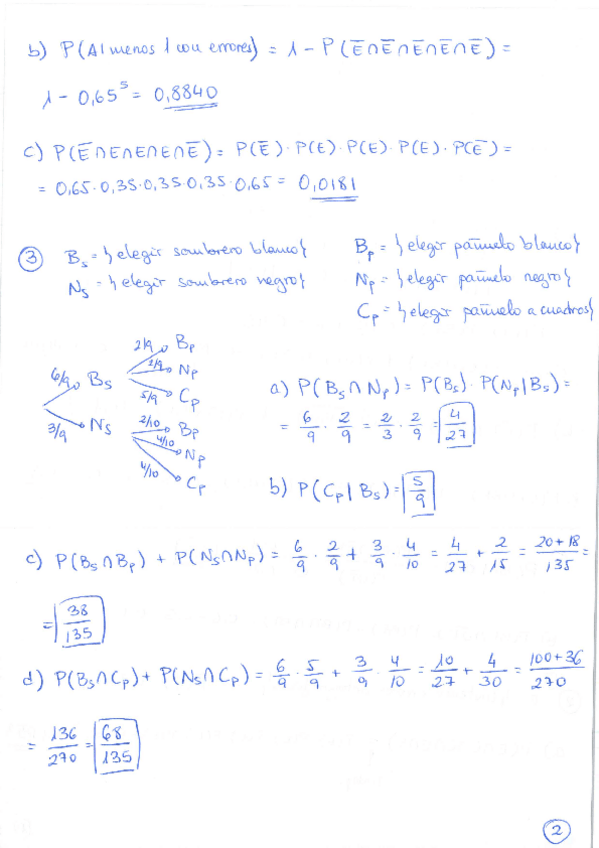 b) P(Al menos 1 con errores) = 1 - P(E̅∩E̅∩E̅∩E̅∩E̅) =
1 - 0,65⁵ = 0,8840
c) P(E̅∩E∩E∩E∩E̅) = P(E̅)·P(E)·P(E)·P(E)·P(E̅) =
= 0,65·0,35·0,35·0,35·0,65 = 0,0181
③ Bs = {elegir sombrero blanco} Bp = {elegir pañuelo blanco}
Ns = {elegir sombrero negro} Np = {elegir pañuelo negro}
Cp = {elegir pañuelo a cuadros}
2/9 Bp
6/9 Bs 2/9 Np
5/9 Cp
3/9 Ns 2/10 Bp
4/10 Np
4/10 Cp
a) P(Bs∩Np) = P(Bs)·P(Np|Bs) =
= 6/9 · 2/9 = 2/3 · 2/9 = 4/27
b) P(Cp|Bs) = 5/9
c) P(Bs∩Bp) + P(Ns∩Np) = 6/9 · 2/9 + 3/9 · 4/10 = 4/27 + 2/15 = 20+18/135 =
= 38/135
d) P(Bs∩Cp) + P(Ns∩Cp) = 6/9 · 5/9 + 3/9 · 4/10 = 10/27 + 4/30 = 100+36/270
= 136/270 = 68/135
2